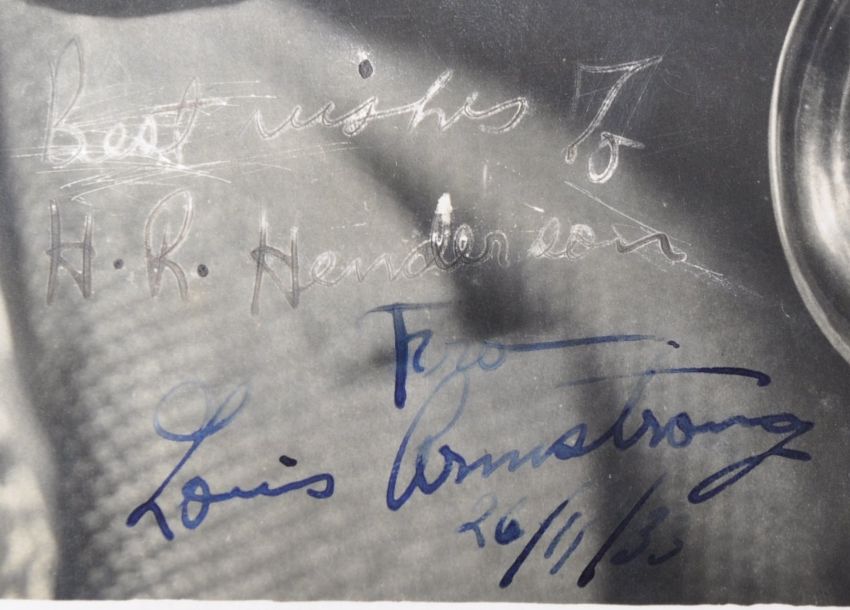 Best wishes To
H. R. Henderson
Fro
Louis Armstrong
26/11/33